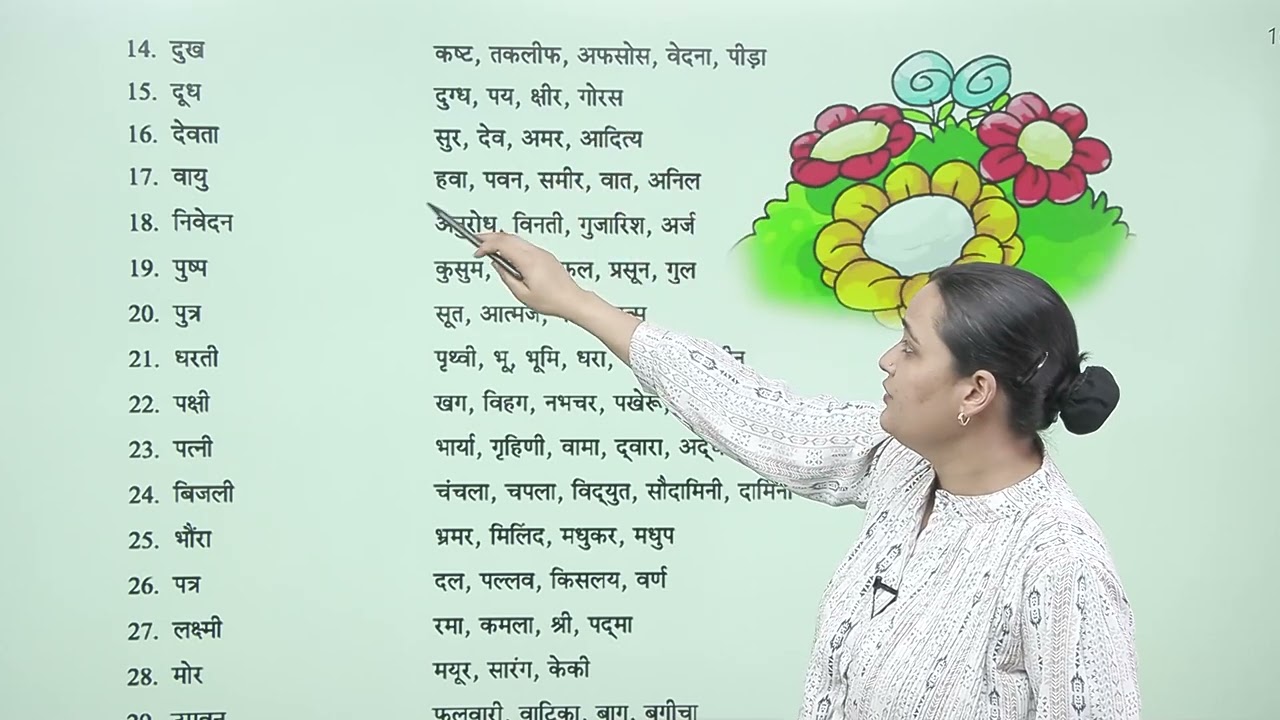 14. दुख कष्ट, तकलीफ, अफसोस, वेदना, पीड़ा
15. दूध दुग्ध, पय, क्षीर, गोरस
16. देवता सुर, देव, अमर, आदित्य
17. वायु हवा, पवन, समीर, वात, अनिल
18. निवेदन विनती, गुजारिश, अर्ज
19. पुष्प कुसुम, प्रसून, गुल
20. पुत्र सूत, आत्मज,
21. धरती पृथ्वी, भू, भूमि, धरा,
22. पक्षी खग, विहग, नभचर, पखेरू,
23. पत्नी भार्या, गृहिणी, वामा, द्वारा,
24. बिजली चंचला, चपला, विद्युत, सौदामिनी, दामिनी
25. भौंरा भ्रमर, मिलिंद, मधुकर, मधुप
26. पत्र दल, पल्लव, किसलय, वर्ण
27. लक्ष्मी रमा, कमला, श्री, पद्मा
28. मोर मयूर, सारंग, केकी
फुलवारी, वाटिका, बाग, बगीचा